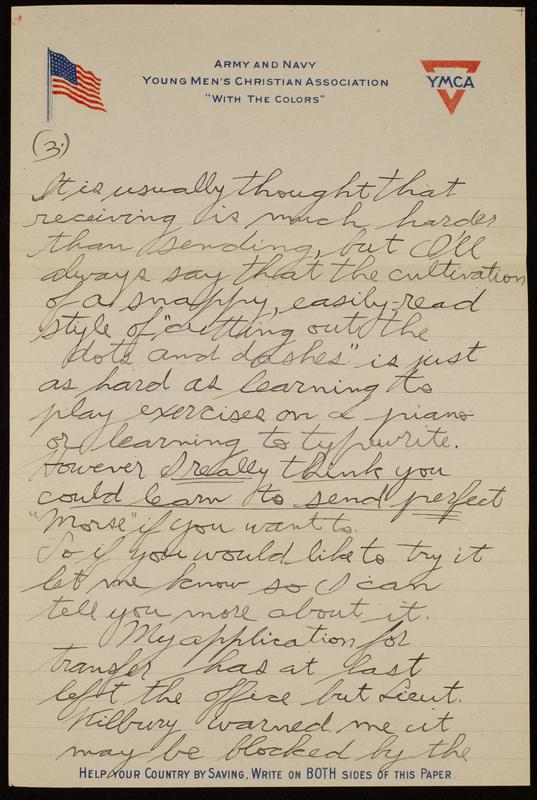 ARMY AND NAVY
YOUNG MEN'S CHRISTIAN ASSOCIATION
"WITH THE COLORS"
YMCA
(3.)
It is usually thought that
receiving is much harder
than sending, but I'll
always say that the cultivation
of a snappy, easily-read
style of "cutting out the
dots and dashes" is just
as hard as learning to
play exercises on a piano
or learning to typwrite.
However I really think you
could learn to send perfect
"Morse" if you want to.
So if you would like to try it
let me know so I can
tell you more about it.
My application for
transfer has at last
left the office but Lieut.
Kilbury warned me it
may be blocked by the
HELP YOUR COUNTRY BY SAVING, WRITE ON BOTH SIDES OF THIS PAPER.